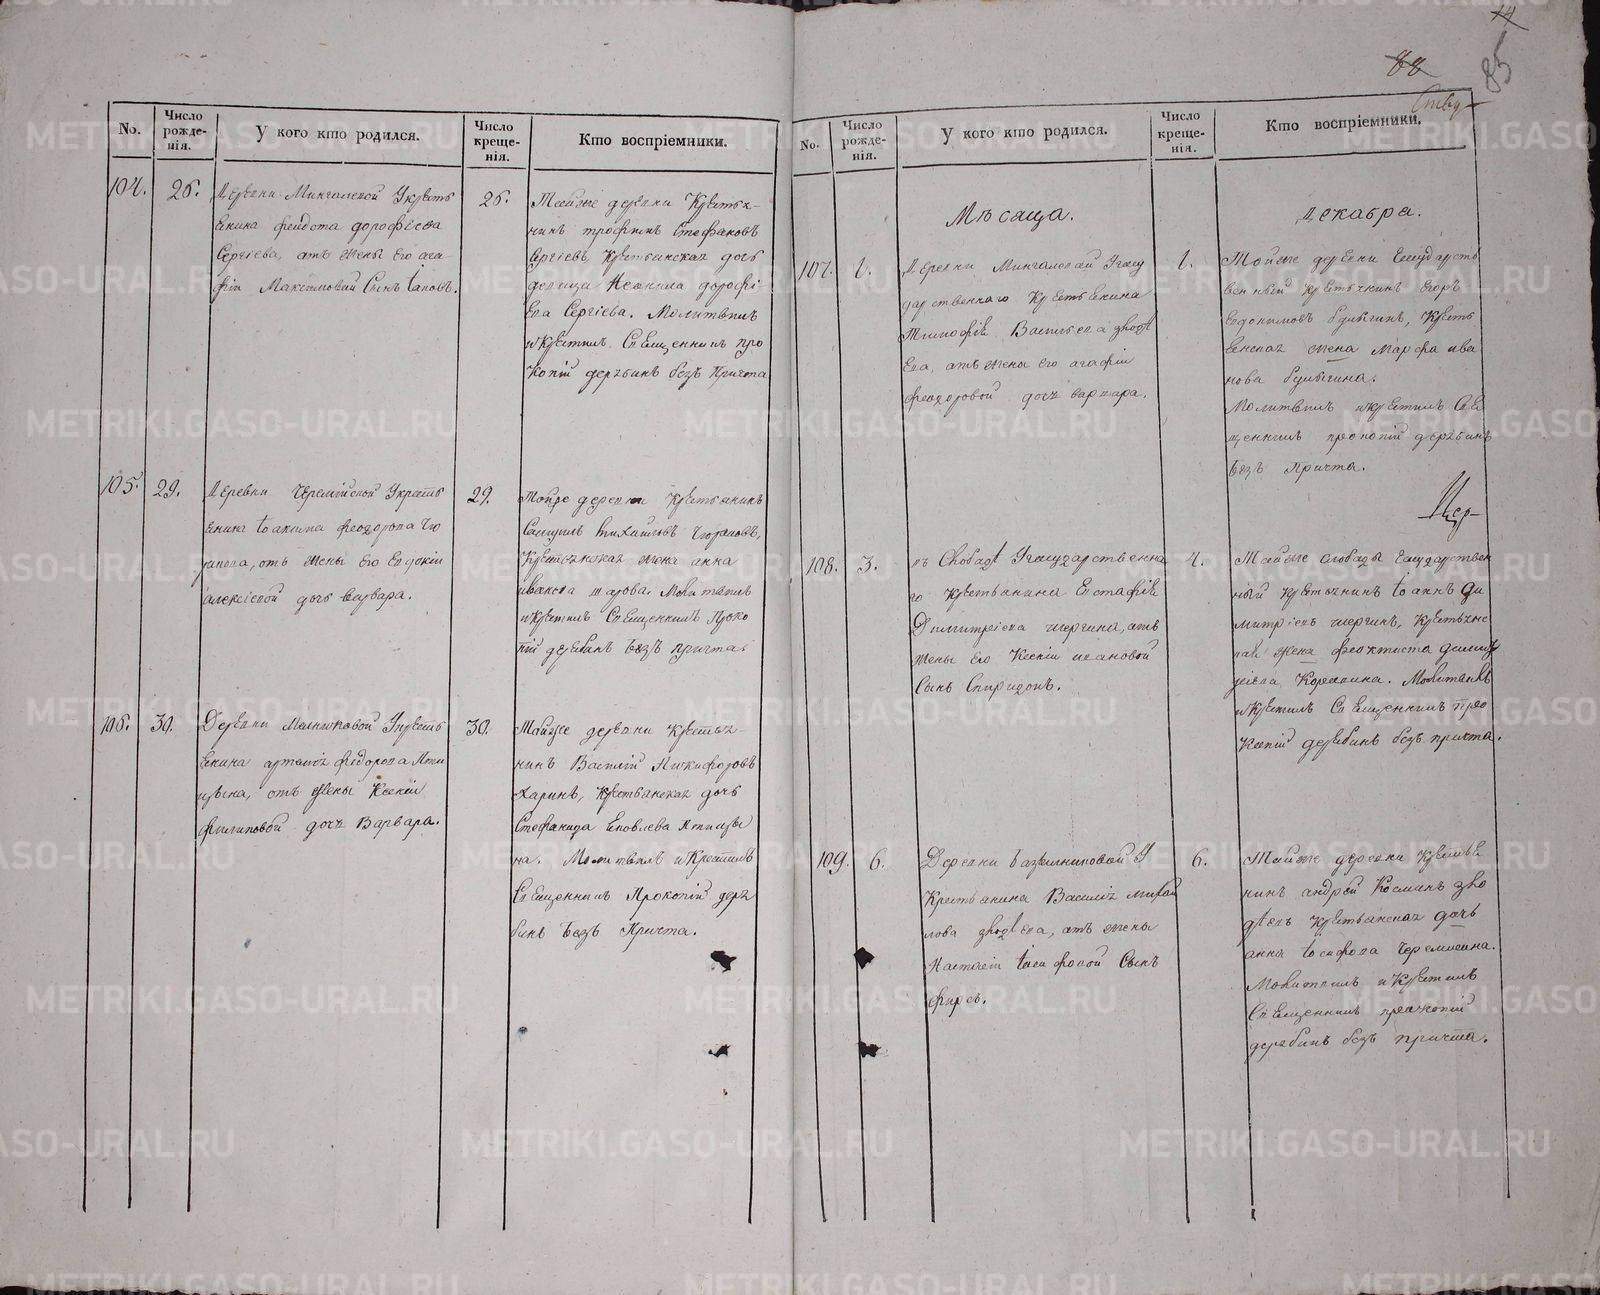 88
85
No.
Число рожде-нія.
У кого кто родился.
Число креще-нія.
Кто воспріемники.
104.
26.
Деревни Мингалевой Укресть
янина Фендота Дорофѣева
Сергѣева, отъ жены его Ага-
фіи Максимовой сынъ Іаковъ.
26.
Тойже деревни Крестья-
нинъ Трофимъ Стефановъ
Сергѣевъ, Крестьянская дочь
девица Неонила Дорофѣ-
ева Сергѣева. Молитвилъ
и Крестилъ Священникъ Про
копій Дерябинъ безъ Причта
105.
29.
Деревни Черемисской Укресть
янина Іоакима Феодорова
отъ жены его Евдокіи
Алексѣевой дочь Варвара.
29.
Тойже деревни Крестьянинъ
Крестьянская жена Анна
Иванова Молитвилъ
и Крестилъ Священникъ Проко
пій Дерябинъ безъ причта.
106.
30.
Деревни Мельниковой Укресть
янина Артемія Федорова Пти
цына, отъ жены Ксеніи
Филиповой дочь Варвара.
30.
Тойже деревни Крестья-
нинъ Василій Никифоровъ
Харинъ, Крестьянская дочь
Стефанида Яковлева Птицы
на. Молитвилъ и Крестилъ
Священникъ Прокопій Деря
бинъ безъ Причта.
No.
Число рожде-нія.
У кого кто родился.
Число креще-нія.
Кто воспріемники.
Мѣсяца.
Декабря.
107.
1.
Деревни Мингалевой Угосу
дарственнаго Крестьянина
Тимофѣя Васильева Звѣз
ева, отъ жены его Агафіи
Феодоровой дочь Варвара.
1.
Тойже деревни Государств
венный Крестьянинъ Егоръ
Евдокимовъ Булыгинъ, Кресть
янская жена Марфа Ива
нова Булыгина.
Молитвилъ и Крестилъ Свя
щенникъ Прокопій Дерябинъ
безъ Причта.
108.
3.
въ Слободѣ Угосударственна
го Крестьянина Евстафія
Димитріева отъ
жены его Ксеніи Ивановой
сынъ Спиридонъ.
4.
Тойже слободы Государствен
ный Крестьянинъ Іоаннъ Ди
митріевъ Крестьянс
кая жена Феоктиста
Молитвилъ
и Крестилъ Священникъ Про
копій Дерябинъ безъ причта.
109.
6.
Деревни У
Крестьянина Василія Михай
лова отъ жены
Настасіи Іосифовой сынъ
Фирсъ.
6.
Тойже деревни Крестья
нинъ Андрей Косминъ
Крестьянская дочь
Анна Іосифова Черемисина.
Молитвилъ и Крестилъ
Священникъ Прокопій
Дерябинъ безъ причта.